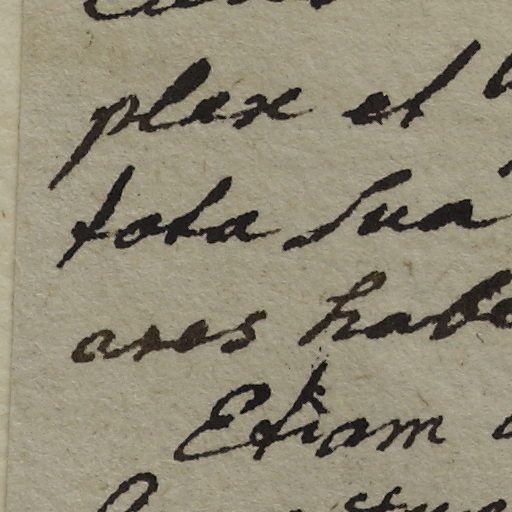 plex et
tota sua
ares habe
Etiam